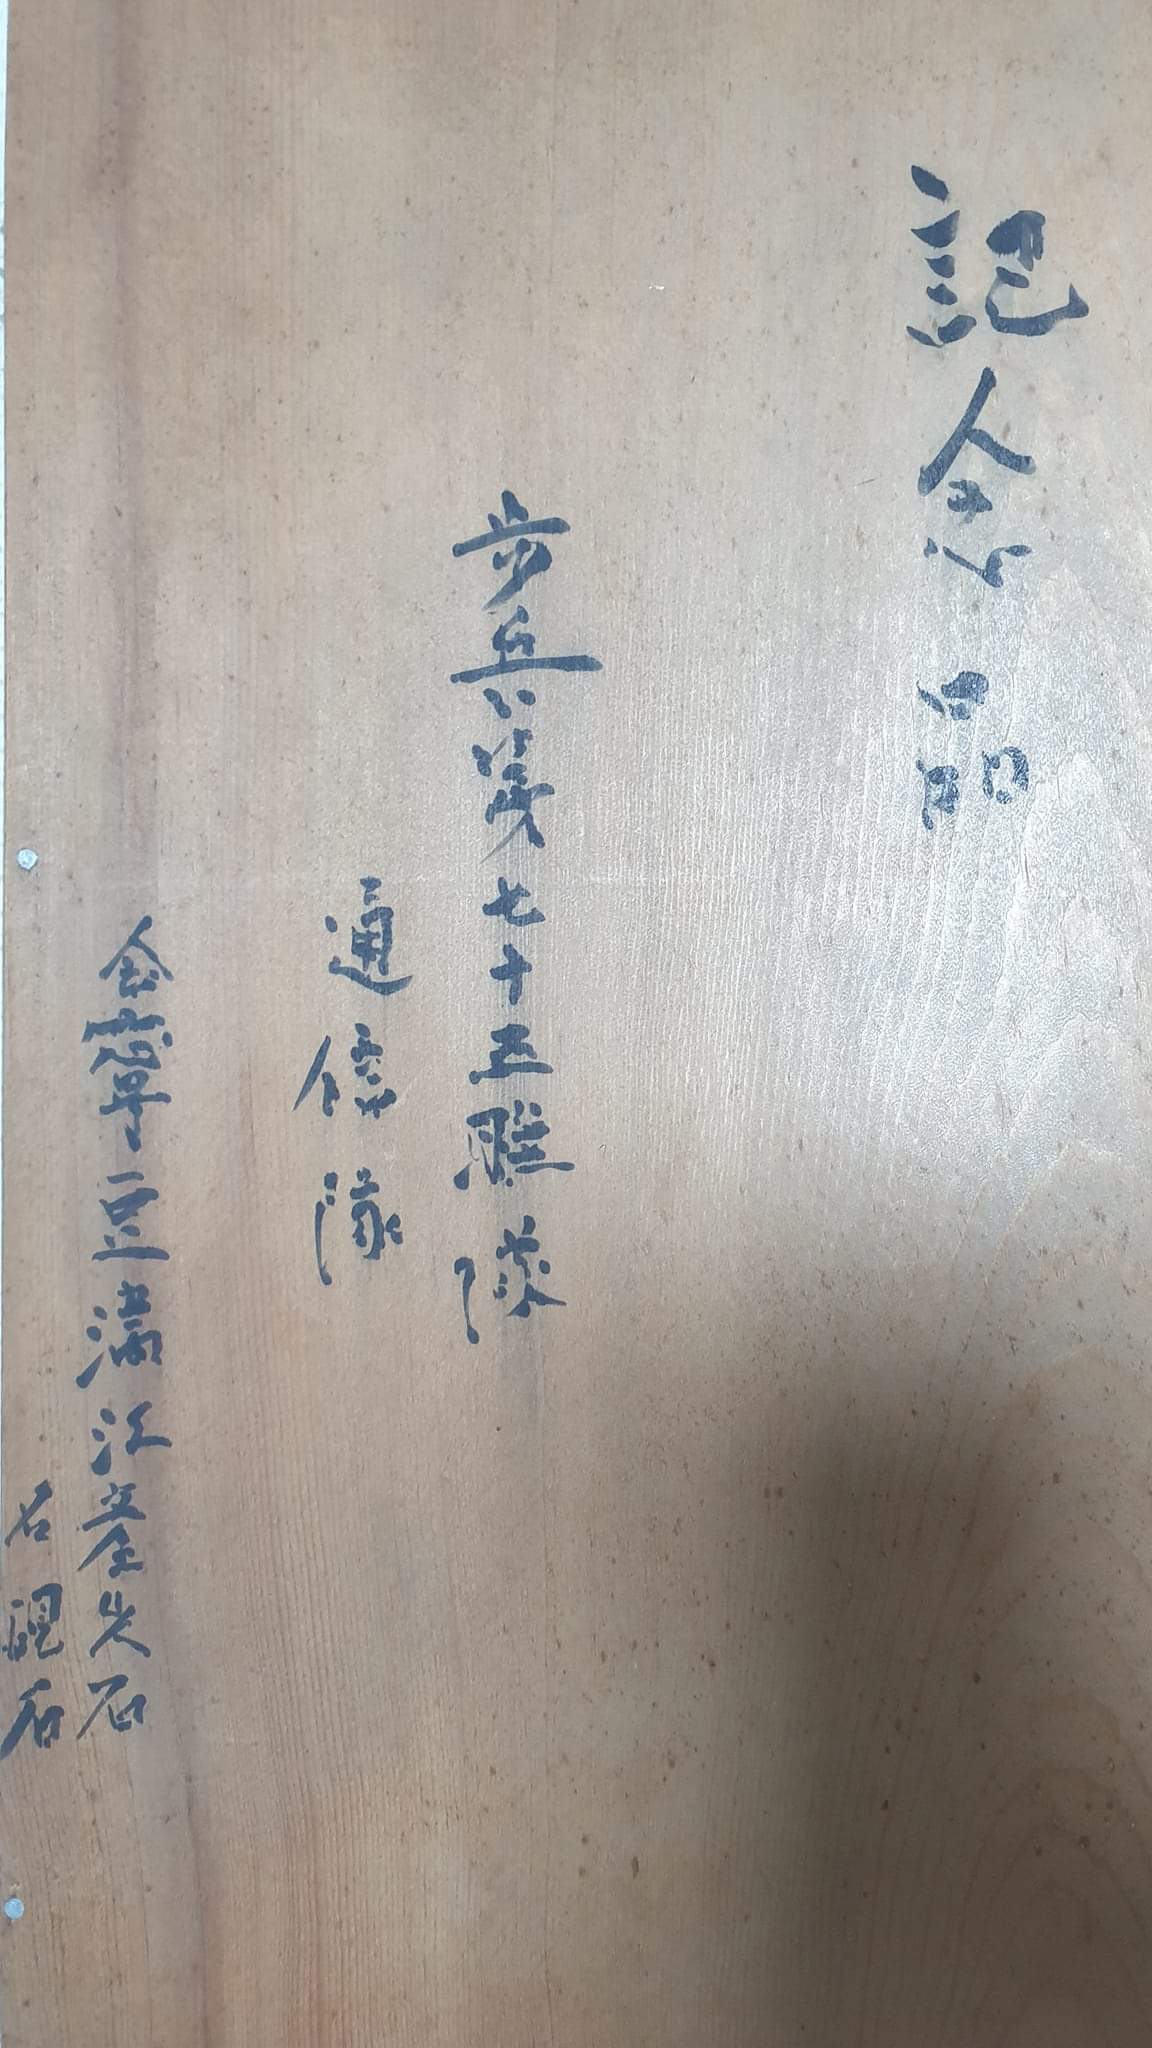 記念品
歩兵第七十五聯隊
通信隊
会寧豆満江産火石
名硯石